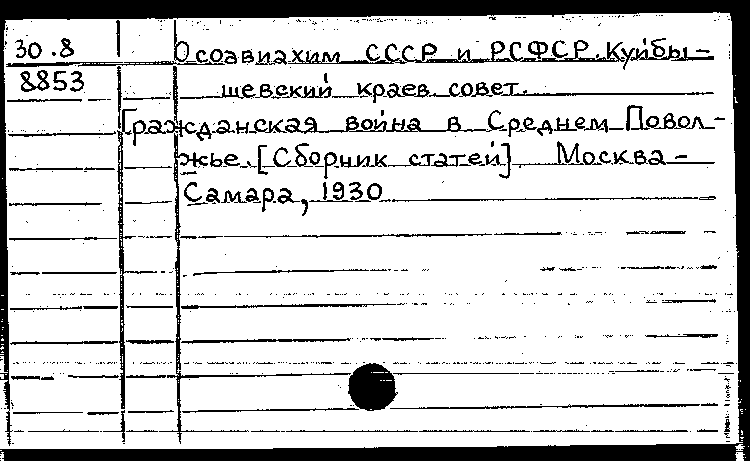 30.8
8853
Осоавиахим СССР и РСФСР. Куйбы-
шевский краев. совет.
Гражданская война в Среднем Повол-
жье. [Сборник статей]. Москва-
Самара, 1930